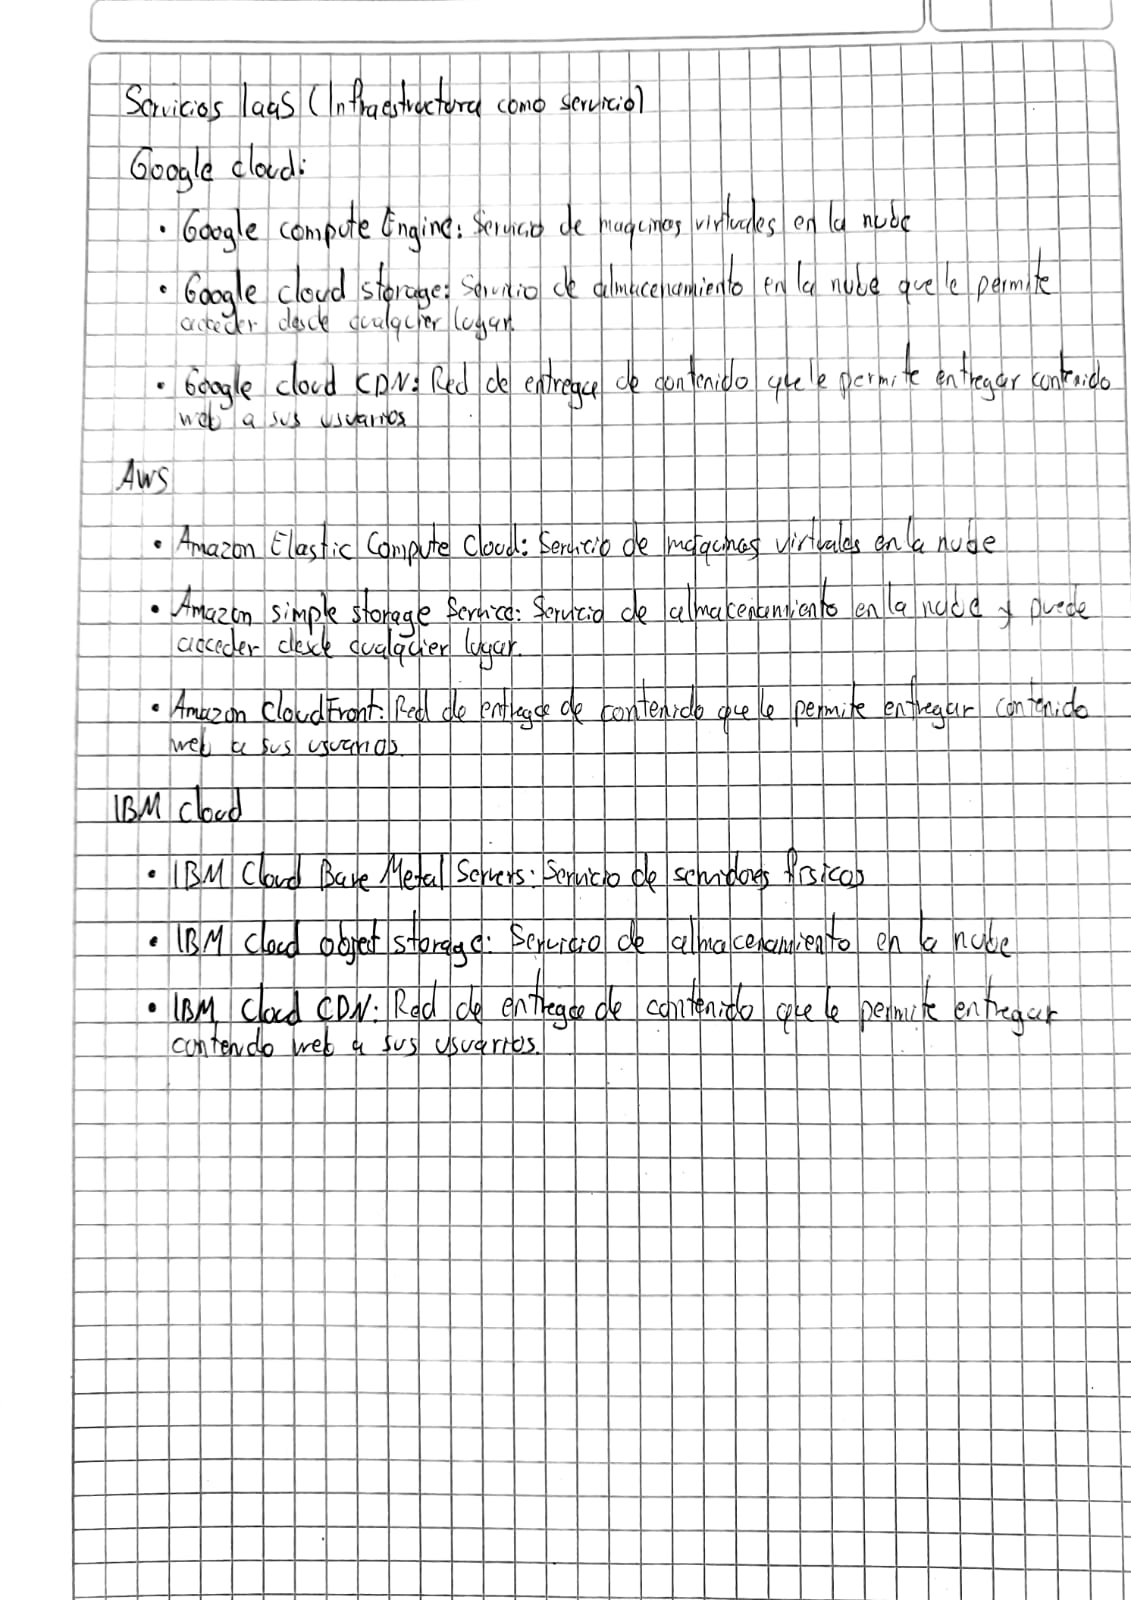 Servicios IaaS (Infraestructura como servicio)
Google cloud:
• Google compute Engine: Servicio de maquinas virtuales en la nube
• Google cloud storage: Servicio de almacenamiento en la nube que le permite
acceder desde cualquier lugar.
• Google cloud CDN: Red de entrega de contenido que le permite entregar contenido
web a sus usuarios
Aws
• Amazon Elastic Compute Cloud: Servicio de maquinas virtuales en la nube
• Amazon simple storage Service: Servicio de almacenamiento en la nube y puede
acceder desde cualquier lugar.
• Amazon CloudFront: Red de entrega de contenido que le permite entregar contenido
web a sus usuarios.
IBM cloud
• IBM Cloud Bare Metal Servers: Servicio de servidores fisicos
• IBM cloud object storage: Servicio de almacenamiento en la nube
• IBM Cloud CDN: Red de entrega de contenido que le permite entregar
contenido web a sus usuarios.